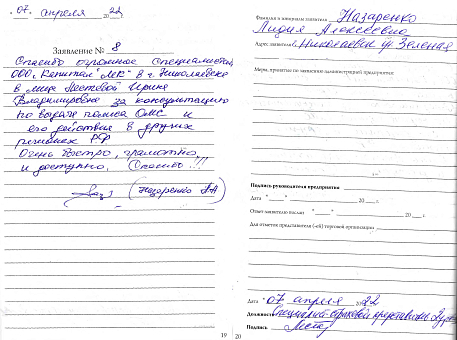 "07" апреля 2022 г.
Заявление № 8
Спасибо огромное специалистам
ООО "Капитал МС" в г. Николаевске
в лице Ирине
Владимировне за консультацию
по выдаче полиса ОМС и
его действия в других
регионах РФ.
Очень быстро, грамотно,
и доступно. Спасибо!!!
(Назаренко ЛА)
19
Фамилия и инициалы заявителя Назаренко
Лидия Алексеевна
Адрес заявителя г. Николаевск ул. Зеленая
Меры, принятые по заявлению администрацией предприятия:
Подпись руководителя предприятия
Дата " " 20 г.
Ответ заявителю послан " " 20 г.
Для отметки представителя (-ей) торговой организации
Дата "07" апреля 2022
Должность Специалист-страховой представитель
Подпись
20